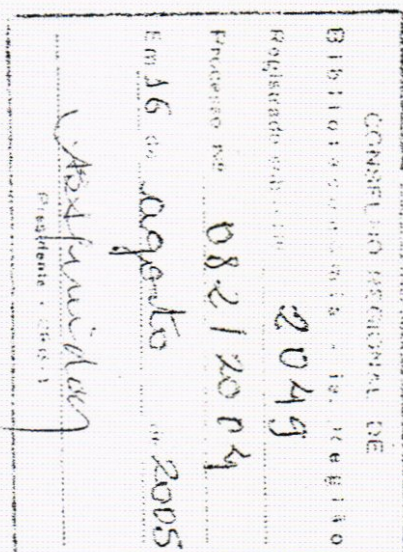 CONSELHO REGIONAL DE
Biblioteconomia - 1a. Região
Registrado sob o nº 2049
Processo nº 082/2004
Em 16 de agosto de 2005
Presidente - CRB-1